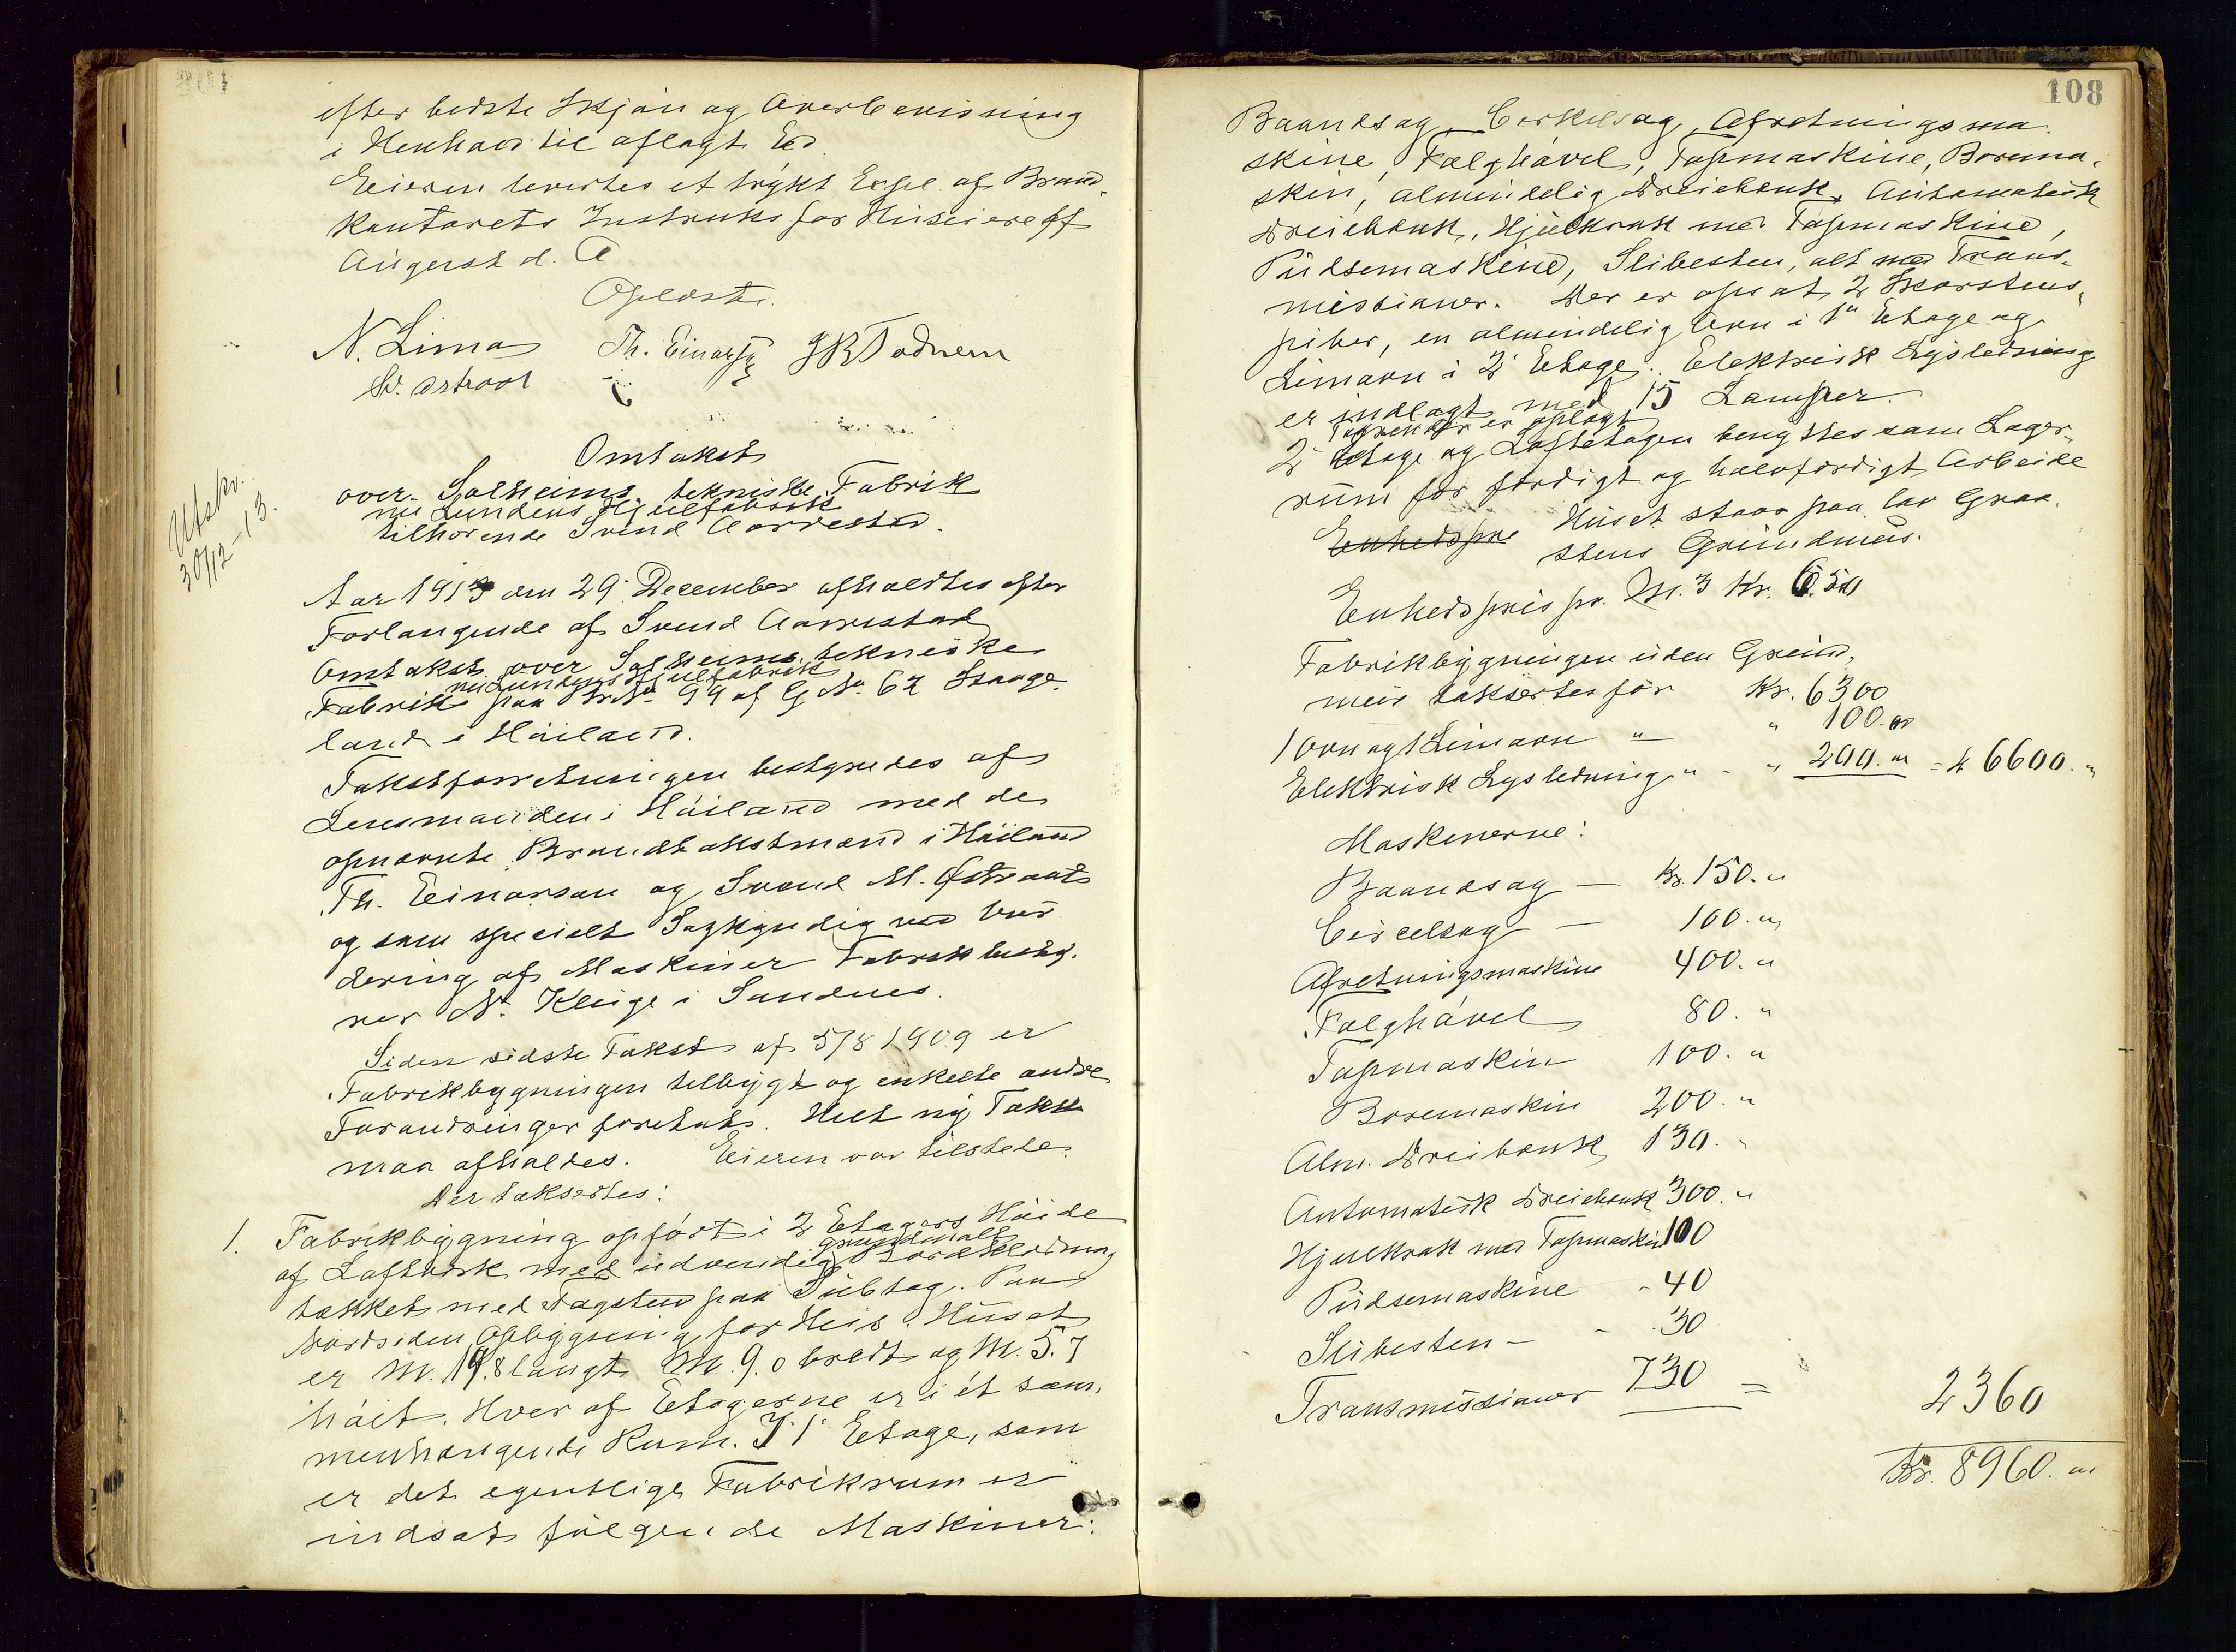 efter bedste Skjøn og Overbevisning
i Henhold til aflagt Ed
Eieren levertes et trykt Expl. af Brand-
kontorets Instruks for Huseiere ff
August d. A
Oplæst.
N. Lima Th. Einarsen J B Todnem
Sv. Østraat
Utskr.
30/12-13.
Omtakst
over Solheims tekniske Fabrik
nu Lundens Hjulfabrik
tilhørende Svend Aarrestad.
Aar 1913 den 29 December afholdtes efter
Forlangende af Svend Aarrestad
Omtakst over Solheims tekniske
nu Lundens Hjulfabrik
Fabrik paa Br.No. 99 af G.No. 62 Stange-
land i Høiland.
Takstforretningen bestyredes af
Lensmanden i Høiland med de
opnævnte Brandtakstmænd i Høiland
Th. Einarsen og Svend M. Østraat
og som specielt Sagkyndig ved Vur-
dering af Maskiner Fabrikbesty-
rer St. Kluge i Sandnes.
Siden sidste Takst af 5/8 1909 er
Fabrikbygningen tilbygt og enkelte andre
Forandringer foretat. Helt ny Takst
maa afholdes. Eieren var tilstede.
Der taksertes:
1. Fabrikbygning opført i 2 Etagers Høide
grundmalt
af Laftverk med udvendig Bordklædning
tækket med Tagsten paa Subtag. Paa
Nordsiden Opbygning for Heis. Huset
er M. 19.8 langt, M. 9.0 bredt og M. 5.7
høit. Hver af Etagerne er i ét sam-
menhængende Rum. I 1' Etage, som
er det egentlige Fabrikrum er
indsat følgende Maskiner:
108
Baandsag, Cirkelsag, Afretningsma-
skine, Fælghøvel, Tapmaskine, Borema-
skin, almindelig Dreiebænk, Automatisk
Dreiebænk, Hjulkrak med Tapmaskine,
Pudsemaskine, Slibesten, alt med Trans-
missioner. Der er opsat 2 Skorstens-
piber, en almindelig Ovn i 1ste Etage og
Limovn i 2' Etage. Elektrisk Lysledning
er indlagt med 15 Lamper.
Tagrender er oplagt
2' Etage og Loftetagen benyttes som Lager-
rum for færdigt og halvfærdigt Arbeide
Enhedspre Huset staar paa lav Graa-
stens Grundmur.
Enhedspris pr. M.3 Kr. 6.50
Fabrikbygningen uden Grund-
mur taksertes for Kr. 6300
1 Ovn og 1 Limovn " " 100.00
Elektrisk Lysledning " - " 200. " = Kr 6600. "
Maskinerne:
Baandsag - Kr. 150. "
Circelsag - 100. "
Afretningsmaskine 400. "
Fælghøvel 80. "
Tapmaskin 100. "
Boremaskin 200. "
Alm. Dreibænk 130. "
Automatisk Dreiebænk 300. "
Hjulkrak med Tapmaskin 100
Pudsemaskine - 40
Slibesten - - 30
Transmissioner 730 = 2360
Kr. 8960. "